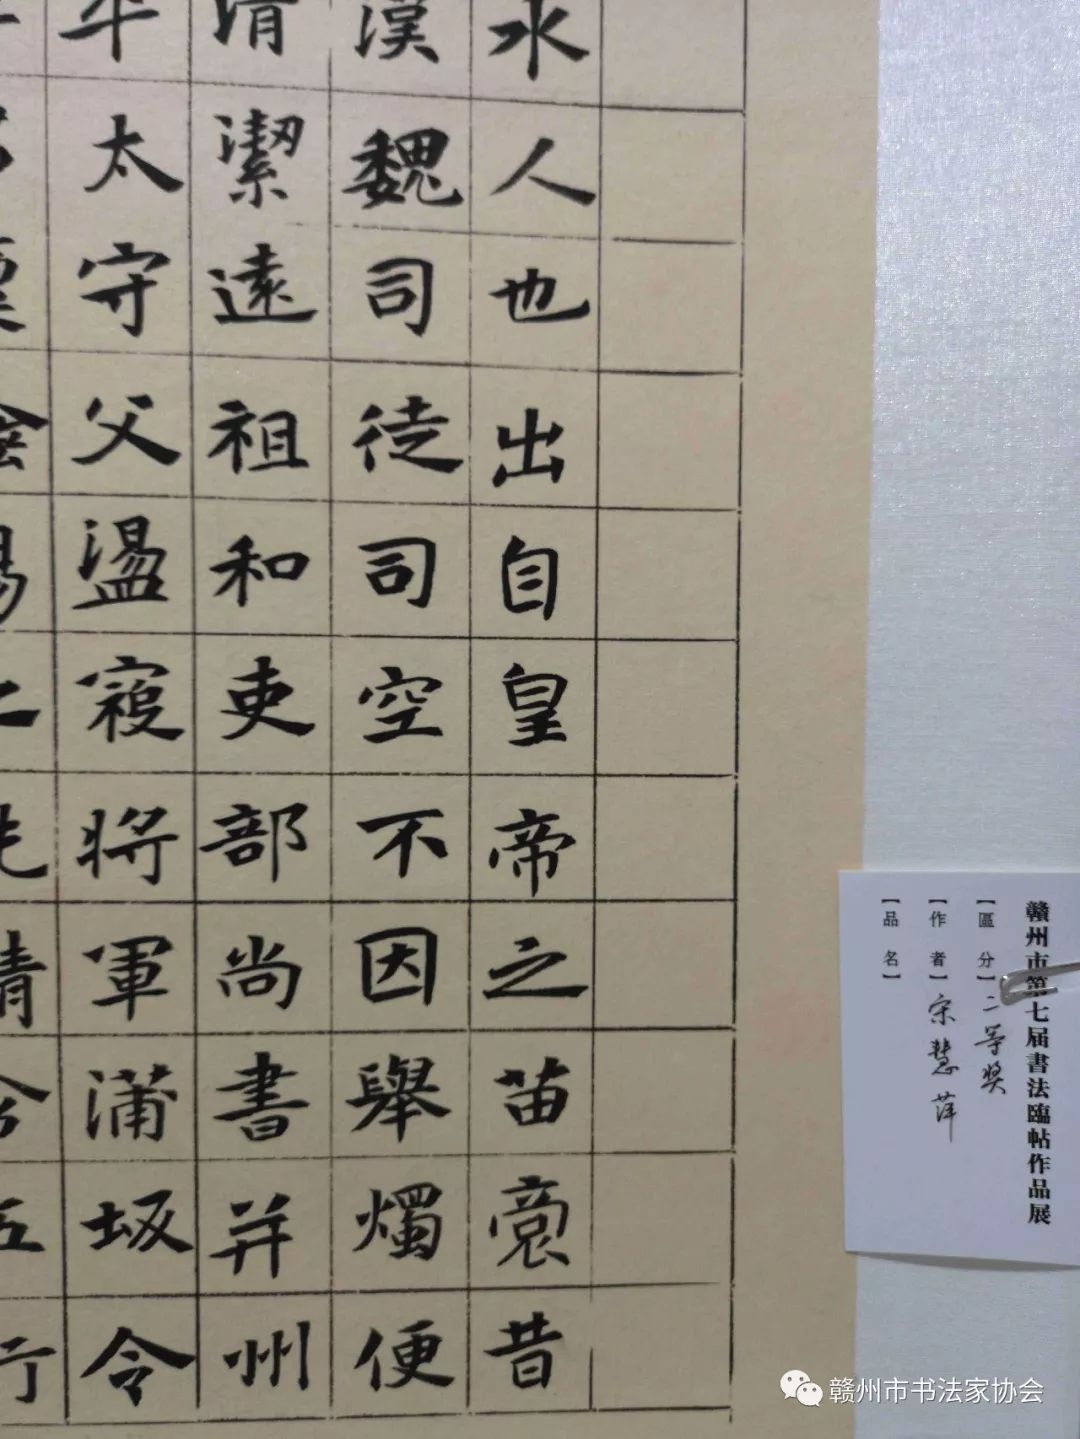 水人也出自皇帝之苗裔昔
漢魏司徒司空不因舉燭便
清潔遠祖和吏部尚書并州
太守父盪寇將軍蒲坂令
贛州市第七届書法臨帖作品展
【區 分】二等奖
【作 者】宋慧萍
【品 名】
赣州市书法家协会